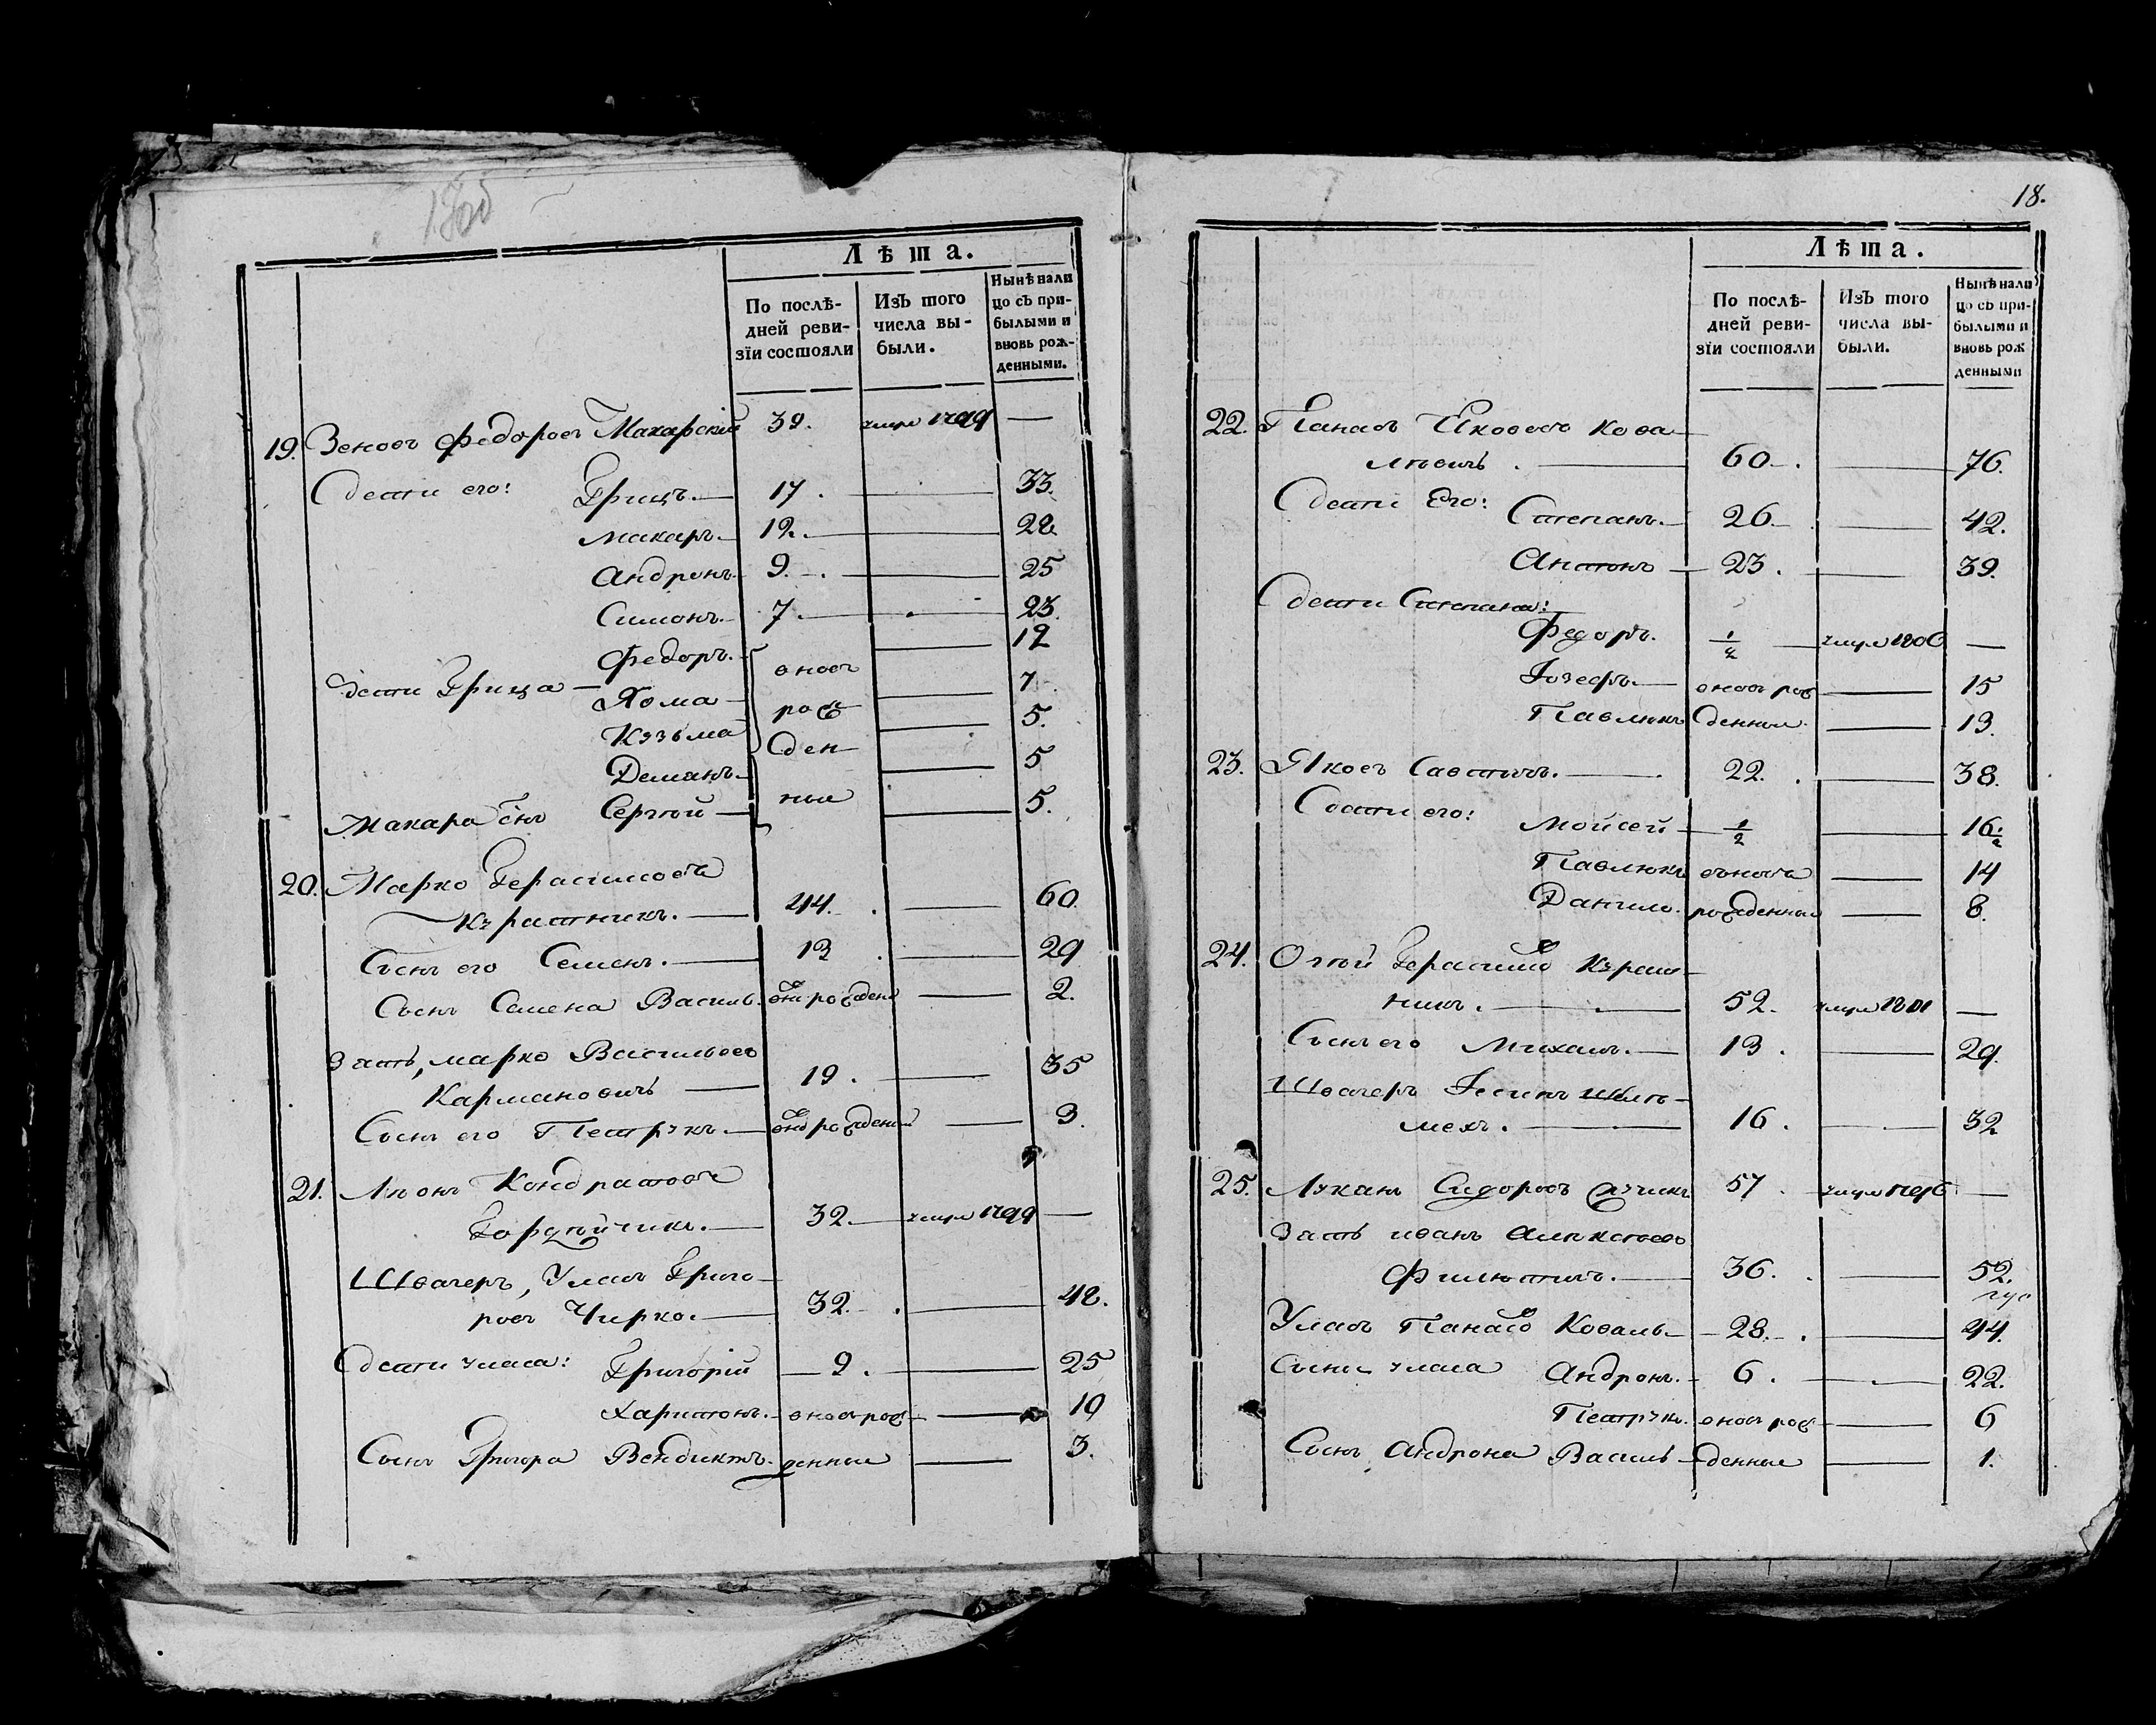 Лѣта.
По послѣ-
дней реви-
зїи состояли
Изъ того
числа вы-
были.
Нынѣ нали
цо съ при-
былыми и
вновь рож-
денными.
19. Зеновъ Федоровъ Махарскій 39. умре 1799 —
Дети его: Грицъ. — 17. — 33.
Макаръ. — 12. — 28
Андронъ. 9. — 25
Симонъ. — 7. — 23.
Федоръ. — вновъ — 12
Дети Грица — Хома — рож — 7.
Кузьма — 5.
Деманъ. — ден — 5
Макара сынъ Сергей — ные — 5.
20. Марко Герасимовъ
Курашникъ. — 44. — 60.
Сынъ его Семенъ. — 13 — 29
Сынъ Семена Василь. внорожден — 2.
Зять, марко Васильевъ
Кармановичъ — 19. — 35
Сынъ его Петрукъ. — вно рожден — 3.
21. Леонъ Кондратовъ
32. — умре 1799 —
Швагеръ, Уласъ Григо-
ровъ Чирко. — 32. — 48.
Дети уласа: Григорій — 9. — 25
Харитонъ. — вновъ рож — 10
Сынъ Григора Вендиктъ. денные — 3.
18.
Лѣта.
По послѣ-
дней реви-
зїи состояли
Изъ того
числа вы-
были.
Нынѣ нали
цо съ при-
былыми и
вновь рож
денными
22. Панасъ Якововъ Кова-
левичъ. — 60. — 76.
Дети Его: Степанъ. — 26. — 42.
Антонъ — 23. — 39.
Дети Степана:
Федоръ. 1/2 — умре 1806 —
Іозефъ. — вновъ рож — 15
Павлюкъ денные — 13.
23. Яковъ Савостичъ. — 22. — 38.
Дети его: Мойсей — 1/2 — 16 1/2
Павлюкъ вьновъ — 14
Данило. рожденные — 8.
24. Герасимов Кураш-
никъ. — 52. умре 1801 —
Сынъ его Михаилъ. — 13. — 29.
Швагеръ
16. — 32
25. Луканъ Сидоровъ 57. умре 1796 —
Зять иванъ Алексеевъ
36. — 52.
Уласъ Панасов Коваль. — 28. — 44.
Сыны уласа Андронъ. — 6. — 22.
Петрукъ. вновъ рож — 6
Сынъ Андрона Василь — денные — 1.